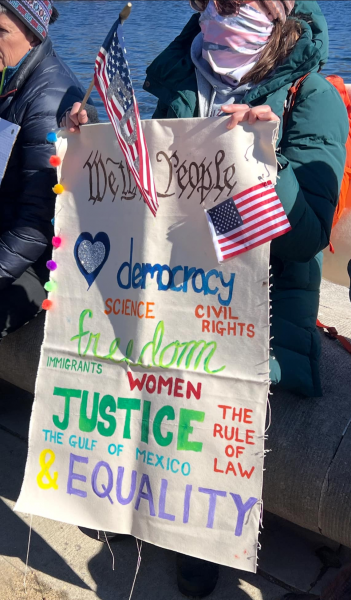 We the People
democracy
SCIENCE CIVIL RIGHTS
freedom
IMMIGRANTS
WOMEN
JUSTICE
THE RULE OF LAW
THE GULF OF MEXICO
& EQUALITY